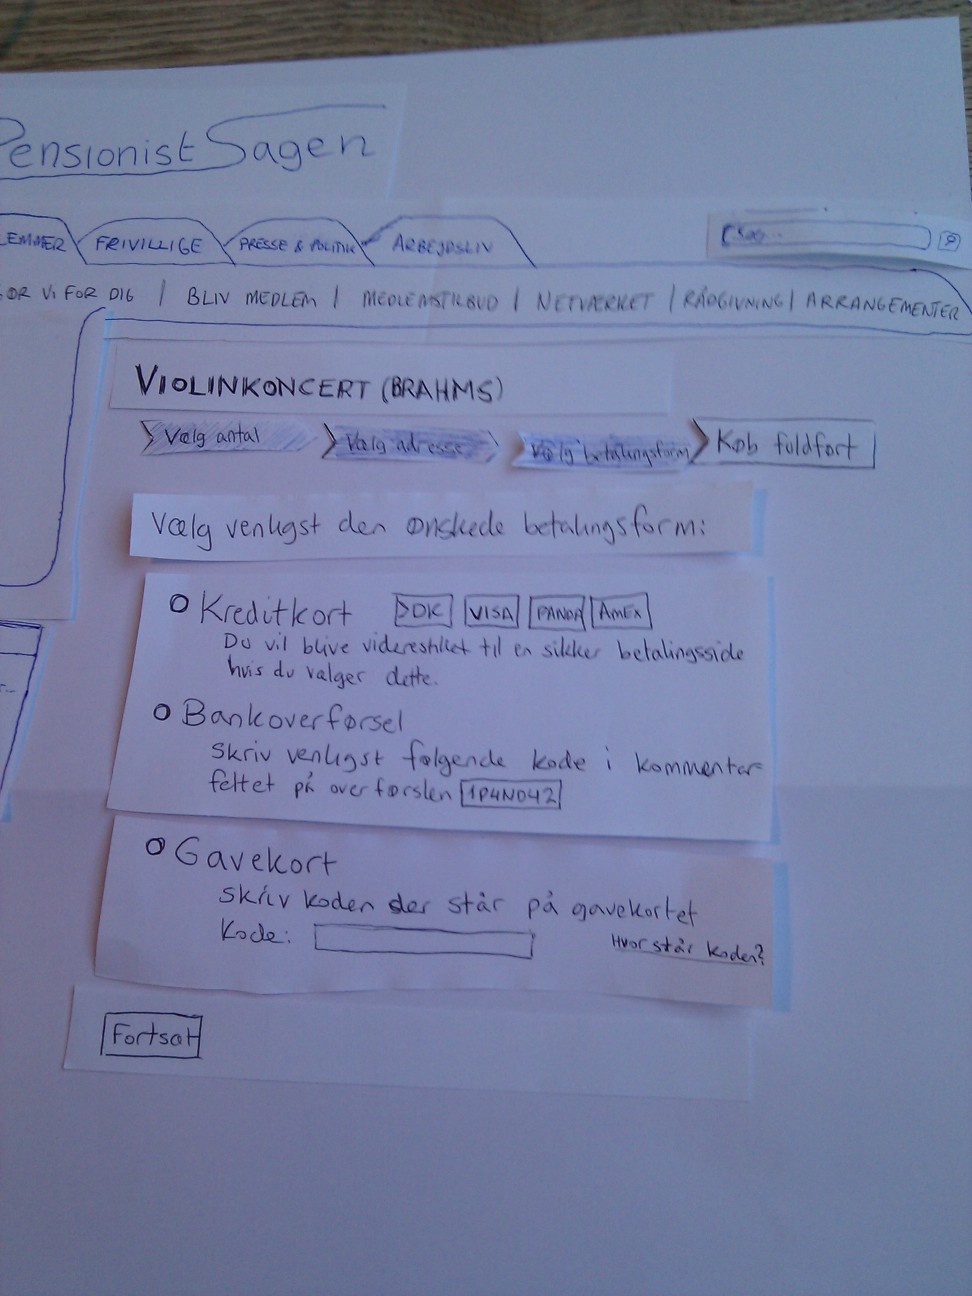 PensionistSagen
LEMMER FRIVILLIGE PRESSE & POLITIK ARBEJDSLIV
Søg...
GØR VI FOR DIG | BLIV MEDLEM | MEDLEMSTILBUD | NETVÆRKET | RÅDGIVNING | ARRANGEMENTER
VIOLINKONCERT (BRAHMS)
Vælg antal Vælg adresse Vælg betalingsform Køb fuldført
Vælg venligst den ønskede betalingsform:
Kreditkort DK VISA AMEX
Du vil blive viderestillet til en sikker betalingsside
hvis du vælger dette.
Bankoverførsel
Skriv venligst følgende kode i kommentar-
feltet på overførslen 1P4N042
Gavekort
Skriv koden der står på gavekortet
Kode: Hvor står koden?
Fortsæt